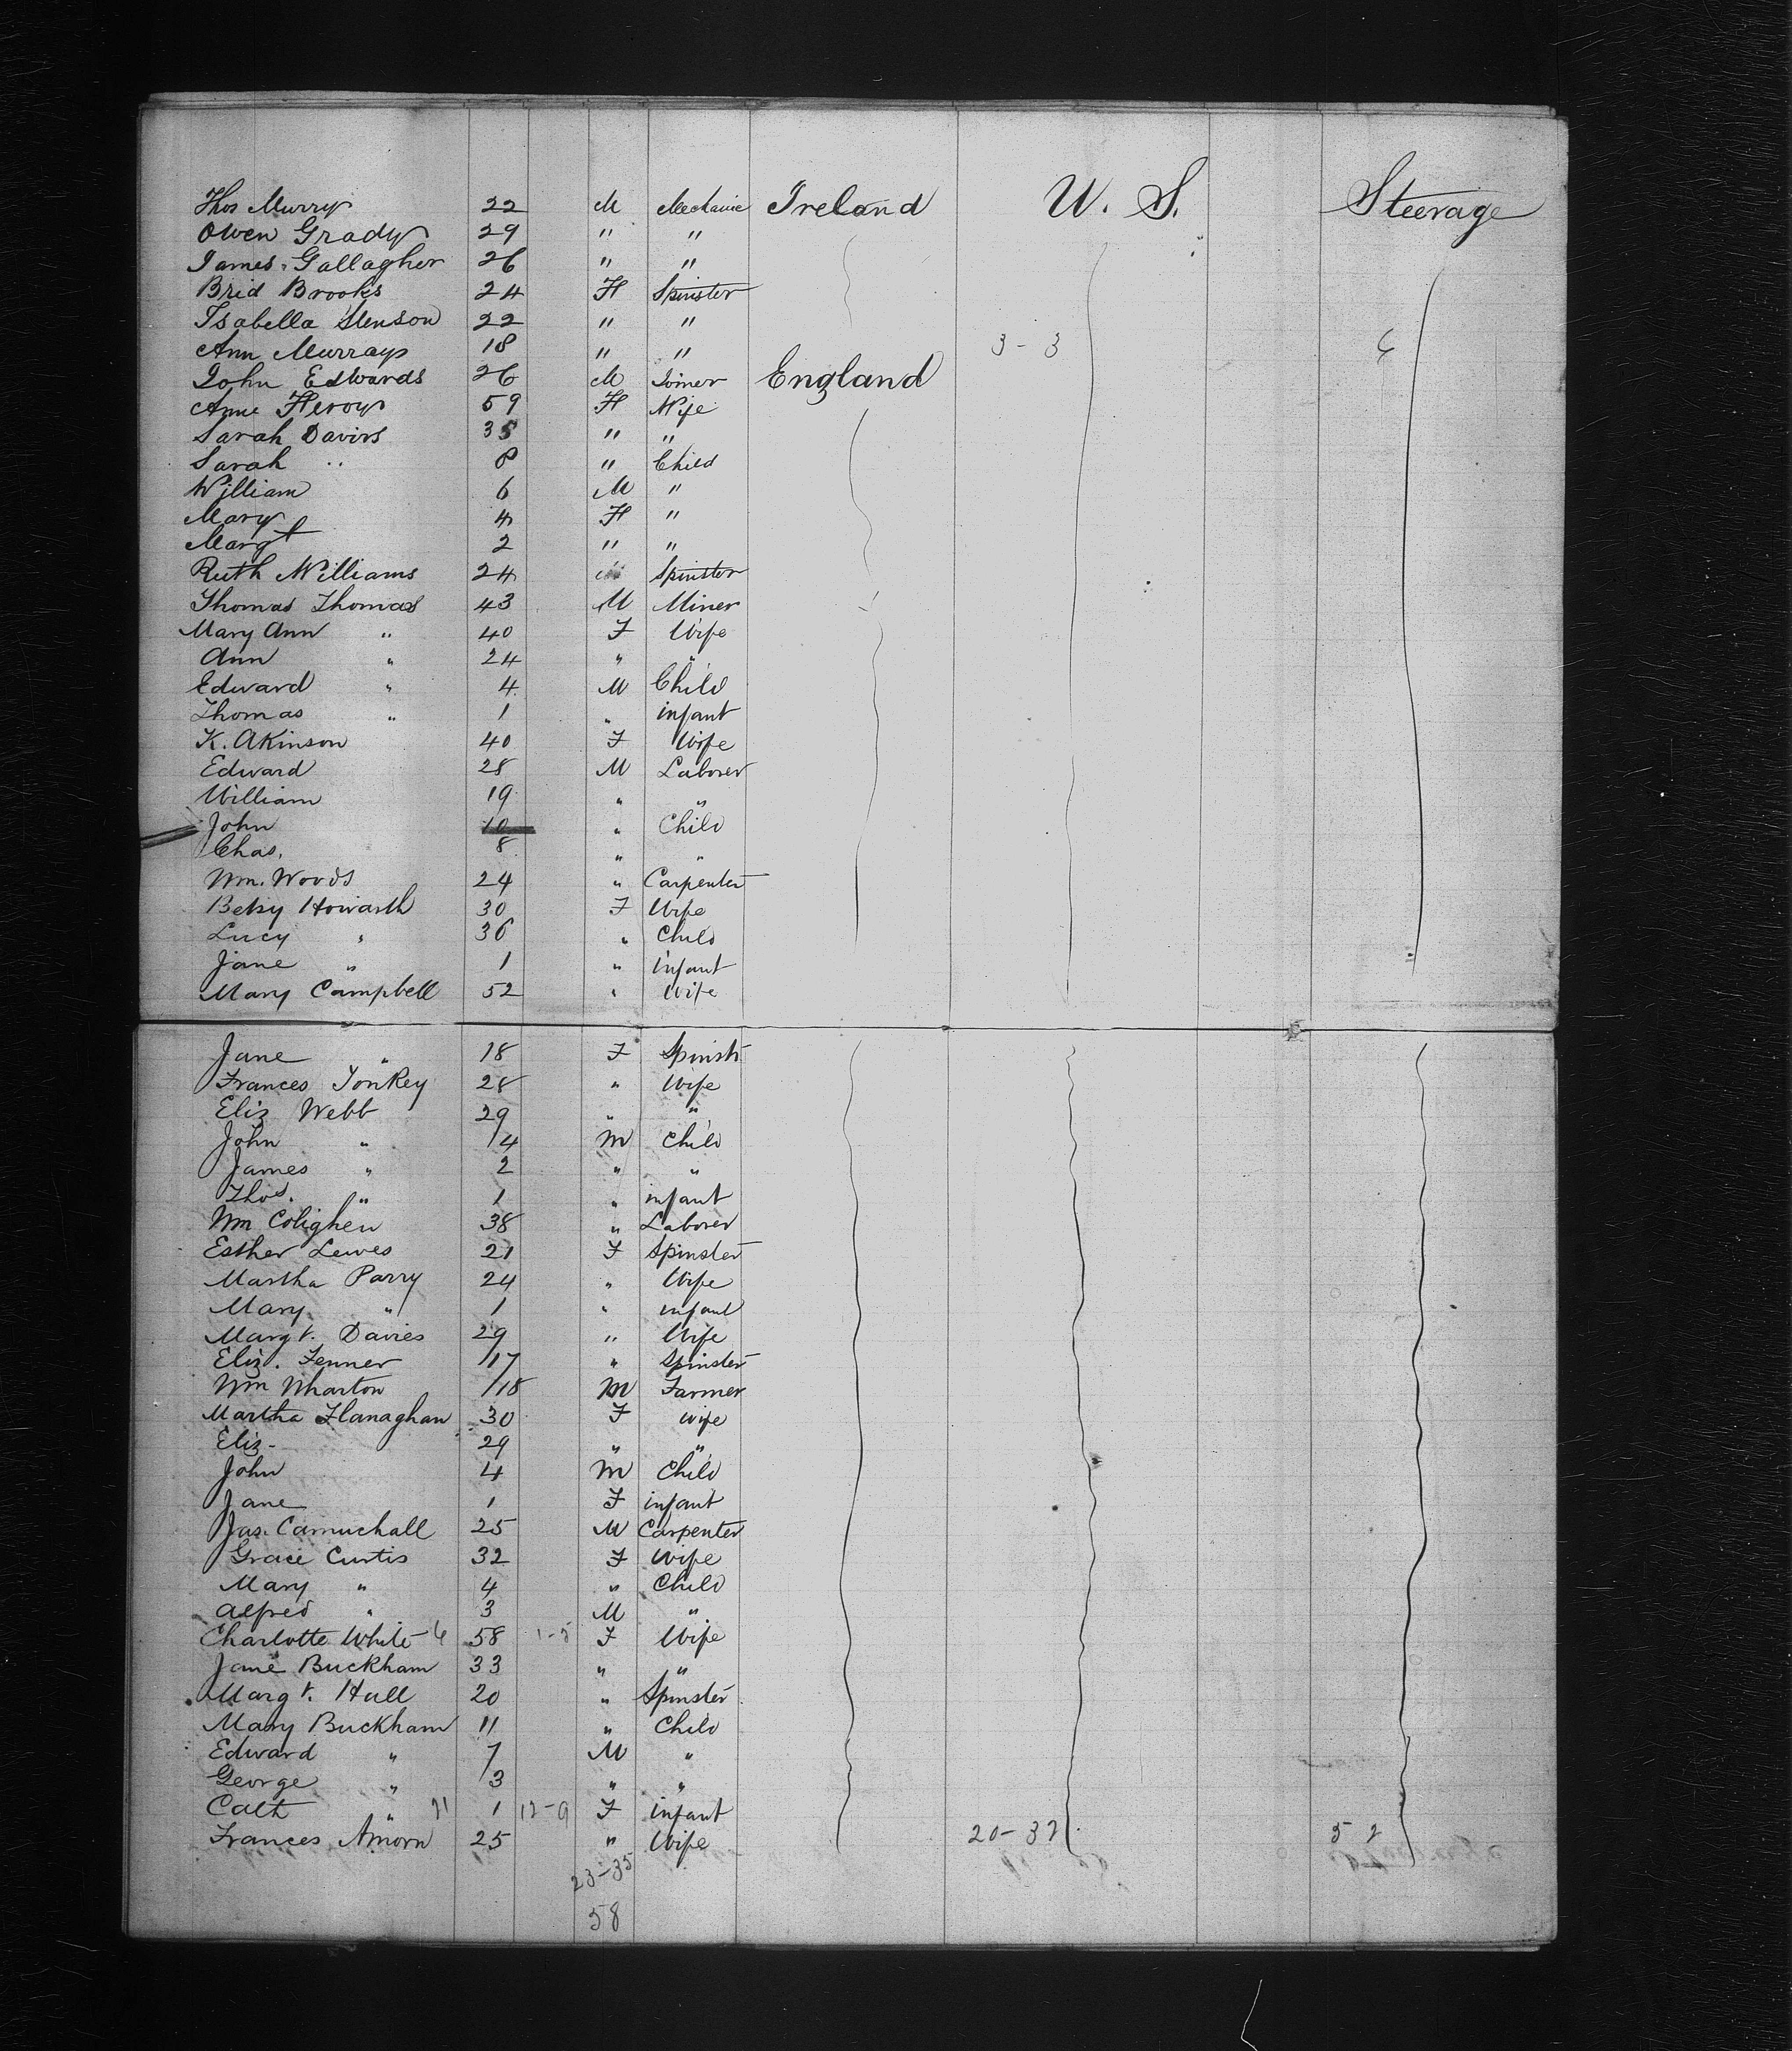 Thos Murry 22 M Mechanic Ireland U. S. Steerage
Owen Grady 29 " "
James Gallagher 26 " "
Brid Brooks 24 F Spinster
Isabella Stenson 22 " "
Ann Murray 18 " " 3-3 6
John Edwards 26 M Joiner England
Anne Fleroy 59 F Wife
Sarah Davirs 38 " "
Sarah " 8 " Child
William 6 M "
Mary 4 F "
Margt 2 " "
Ruth Williams 24 Spinster
Thomas Thomas 43 M Miner
Mary Ann " 40 F Wife
Ann " 24 " "
Edward " 4 M Child
Thomas " 1 " infant
K. Akinson 40 F Wife
Edward 28 M Laborer
William 19 " "
John 10 " Child
Chas. 8 " "
Wm. Woods 24 " Carpenter
Betsy Howarth 30 F Wife
Lucy " 36 " Child
Jane " 1 " infant
Mary Campbell 52 " Wife
Jane " 18 F Spinstr
Frances Yonkey 28 " Wife
Eliz Webb 29 " "
John " 4 M Child
James " 2 " "
Thos. " 1 " infant
Wm Colighen 38 " Laborer
Esther Lewes 21 F Spinster
Martha Parry 24 " Wife
Mary " 1 " infant
Margt. Davies 29 " Wife
Eliz. Fenner 17 " Spinster
Wm Wharton 18 M Farmer
Martha Flanaghan 30 F wife
Eliz- 29 " "
John 4 M Child
Jane 1 F infant
Jas. Camuchall 25 M Carpenter
Grace Curtis 32 F Wife
Mary " 4 " Child
Alfred " 3 M "
Charlotte White 6 58 1-5 F Wife
Jane Buckham 33 " "
Margt. Hall 20 " Spinster
Mary Buckham 11 " Child
Edward " 7 M "
George " 3 " "
Cath " 21 1 12-9 F infant
Frances Amorn 25 " Wife 20-32 52
23-35
58